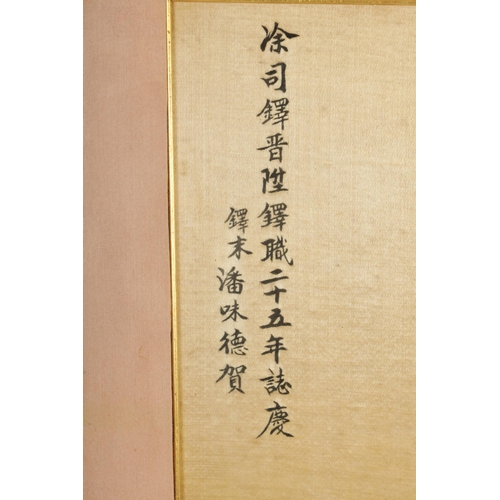 凃司鐸晋陞鐸職二十五年誌慶
鐸末潘味德賀